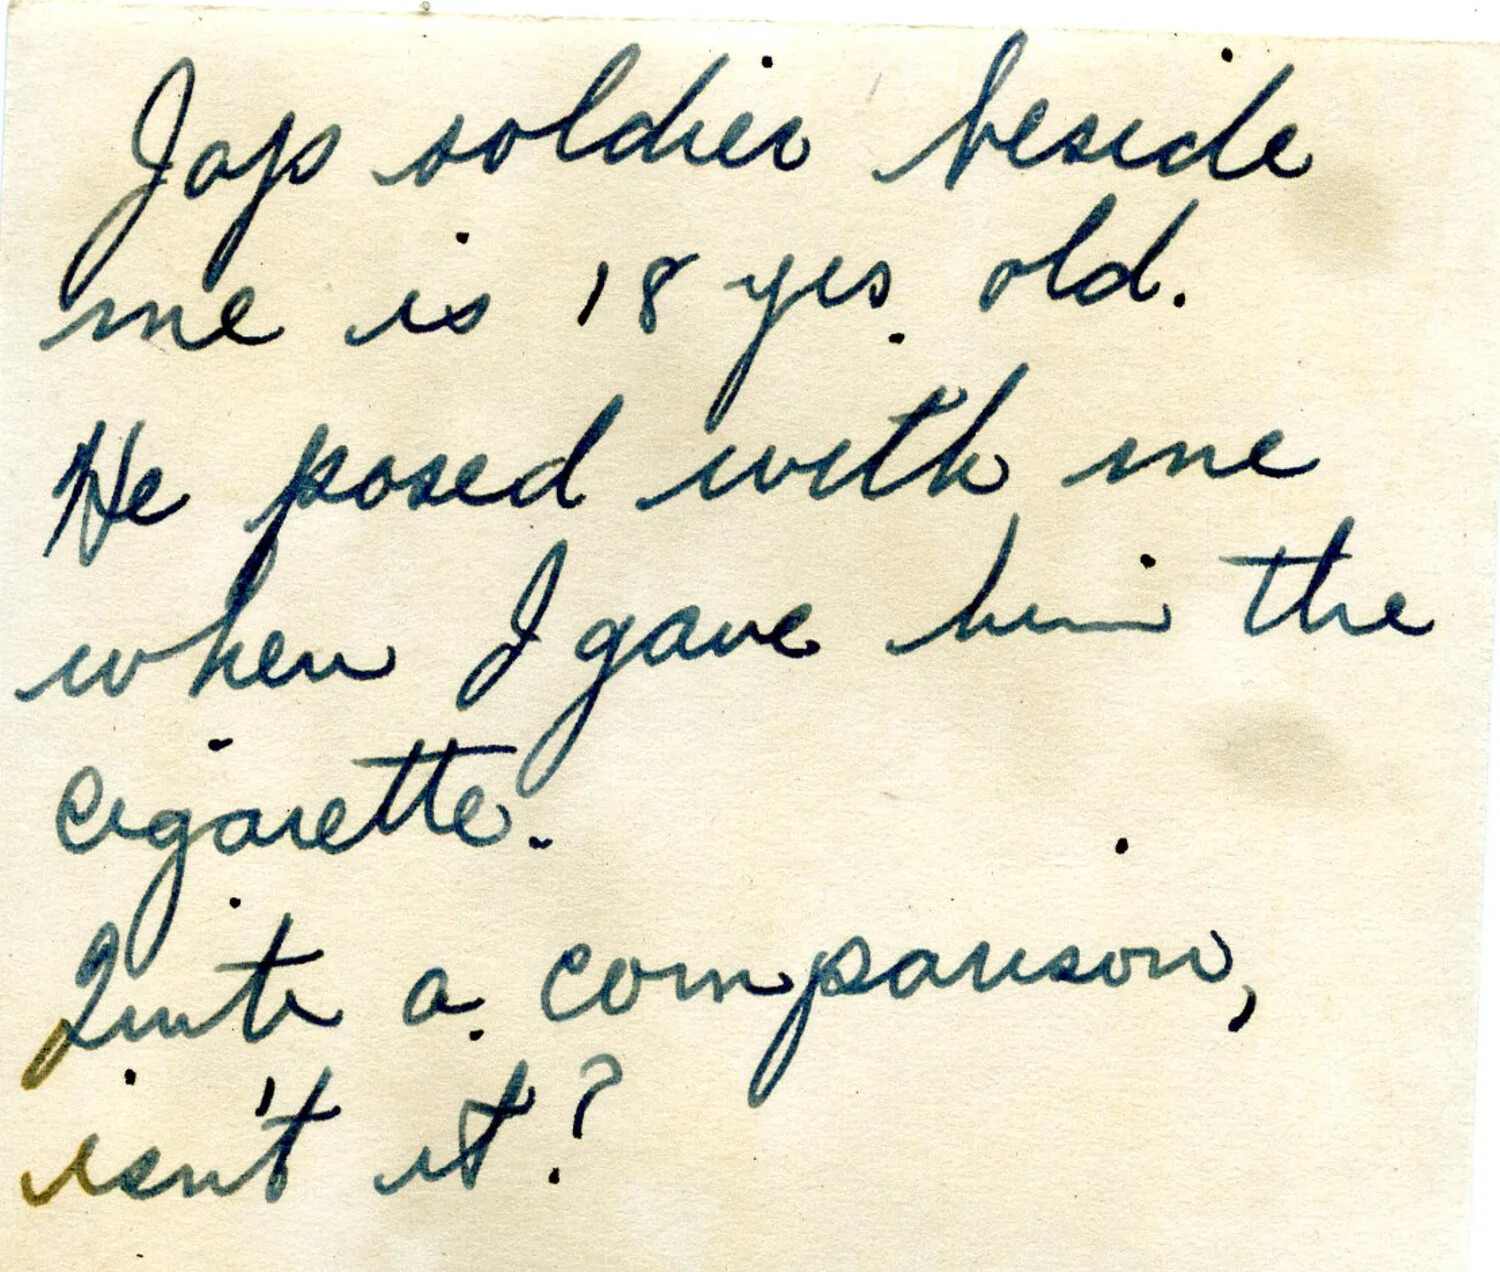 Jap soldier beside
me is 18 yrs. old.
He posed with me
when I gave him the
cigarette.
Quite a comparison,
isn't it?